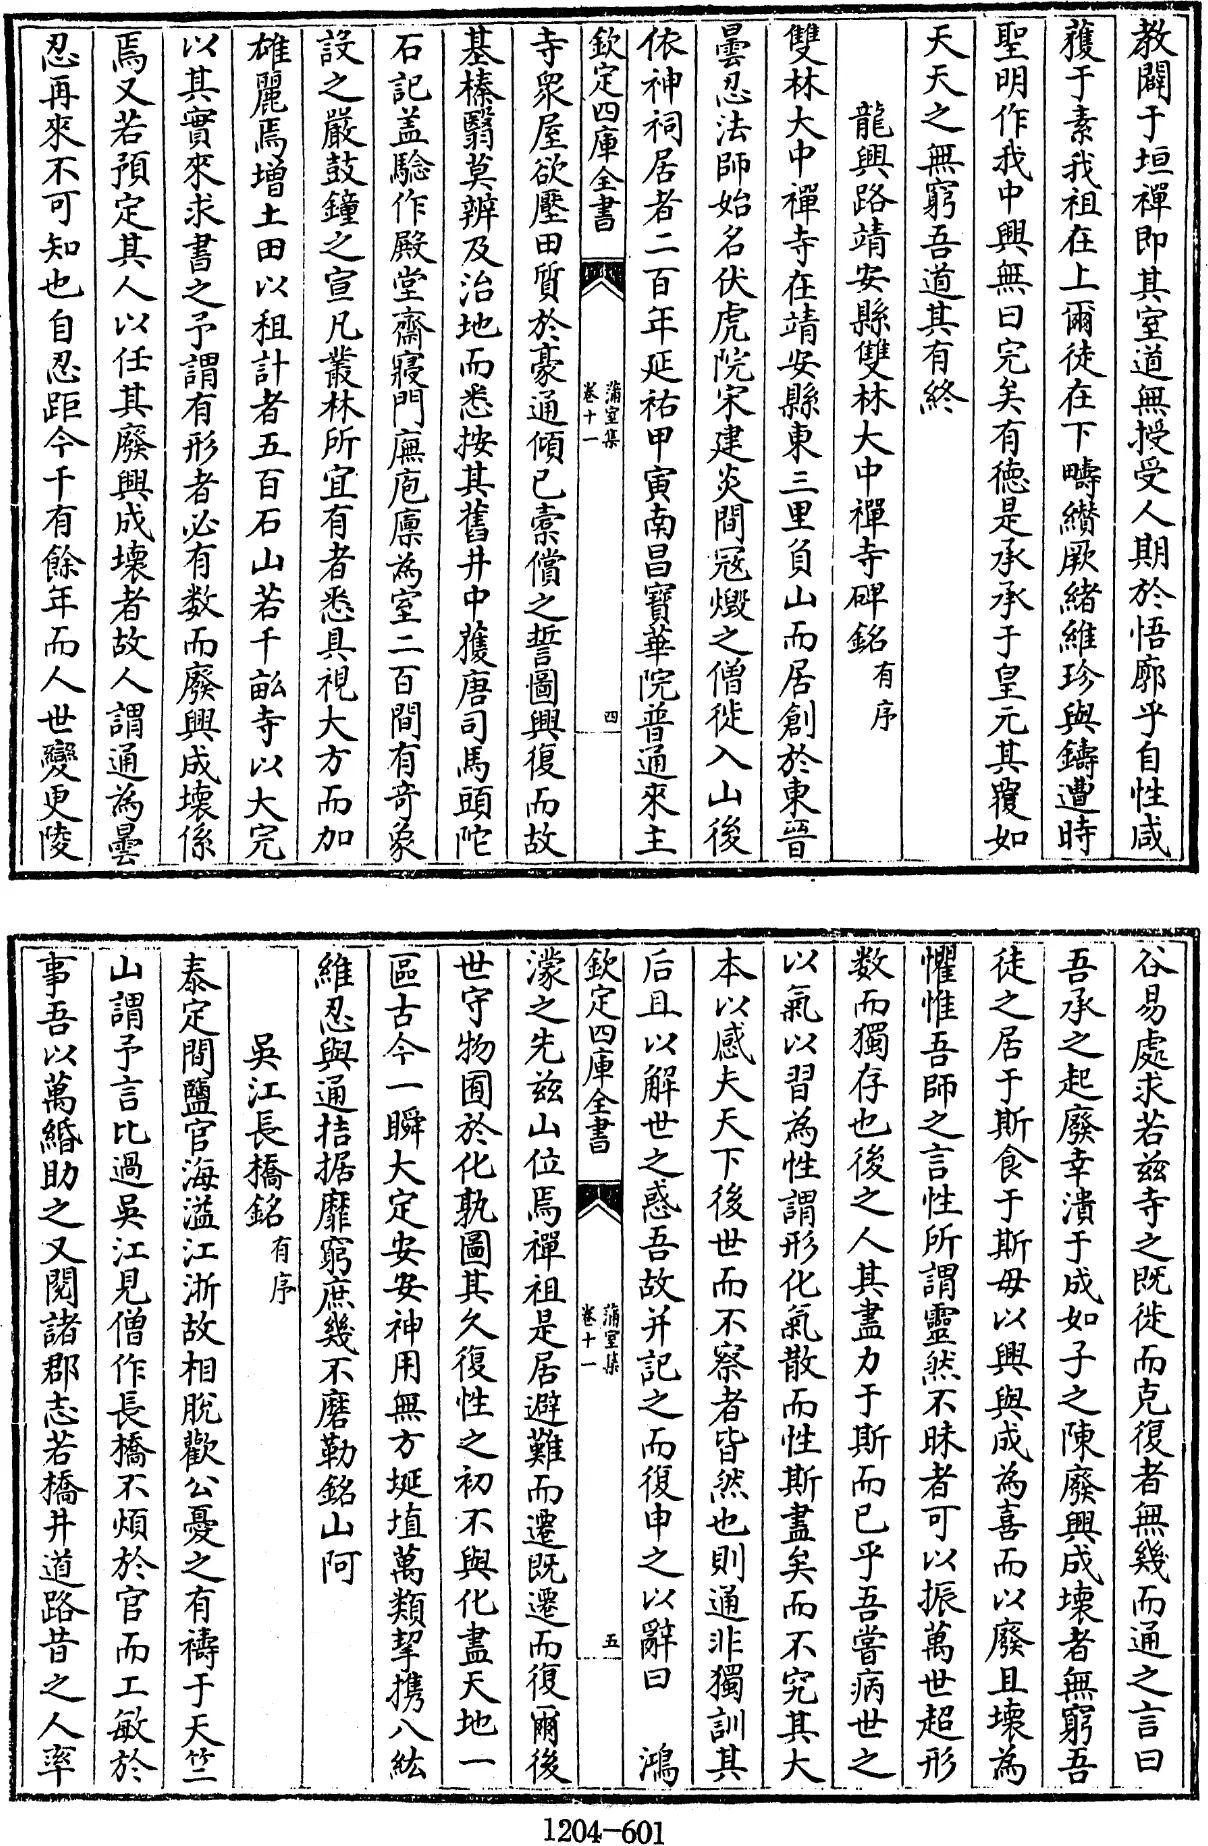 教闢于垣禪即其室道無授受人期於悟廓乎自性咸
獲于素我祖在上爾徒在下疇纉厥緒維珍與鑄遭時
聖明作我中興無曰完矣有德是承承于皇元其覆如
天天之無窮吾道其有終
龍興路靖安縣雙林大中禪寺碑銘有序
雙林大中禪寺在靖安縣東三里負山而居創於東晉
曇忍法師始名伏虎院宋建炎間冦燬之僧徙入山後
依神祠居者二百年延祐甲寅南昌寶華院普通來主
欽定四庫全書
蒲室集
卷十一
四
寺衆屋欲壓田質於豪通傾已槖償之誓圖興復而故
基榛翳莫辨及治地而悉按其舊井中獲唐司馬頭陀
石記盖騐作殿堂齋寢門廡庖廪為室二百間有奇象
設之嚴鼓鐘之宣凡叢林所宜有者悉具視大方而加
雄麗焉增土田以租計者五百石山若干畝寺以大完
以其實來求書之予謂有形者必有数而廢興成壞係
焉又若預定其人以任其廢興成壞者故人謂通為曇
忍再來不可知也自忍距今千有餘年而人世變更陵
谷易處求若兹寺之既徙而克復者無幾而通之言曰
吾承之起廢幸潰于成如子之陳廢興成壞者無窮吾
徒之居于斯食于斯毋以興與成為喜而以廢且壞為
懼惟吾師之言性所謂靈然不昧者可以振萬世超形
数而獨存也後之人其盡力于斯而已乎吾嘗病世之
以氣以習為性謂形化氣散而性斯盡矣而不究其大
本以感夫天下後世而不察者皆然也則通非獨訓其
后且以解世之惑吾故并記之而復申之以辭曰 鴻
欽定四庫全書
蒲室集
卷十一
五
濛之先兹山位焉禪祖是居避難而遷既遷而復爾後
世守物囿於化孰圖其久復性之初不與化盡天地一
區古今一瞬大定安安神用無方埏埴萬類挈携八紘
維忍與通拮据靡窮庶幾不磨勒銘山阿
吳江長橋銘有序
泰定間鹽官海溢江浙故相脫歡公憂之有禱于天竺
山謂予言比過吳江見僧作長橋不煩於官而工敏於
事吾以萬緡助之又閱諸郡志若橋井道路昔之人率
1204-601